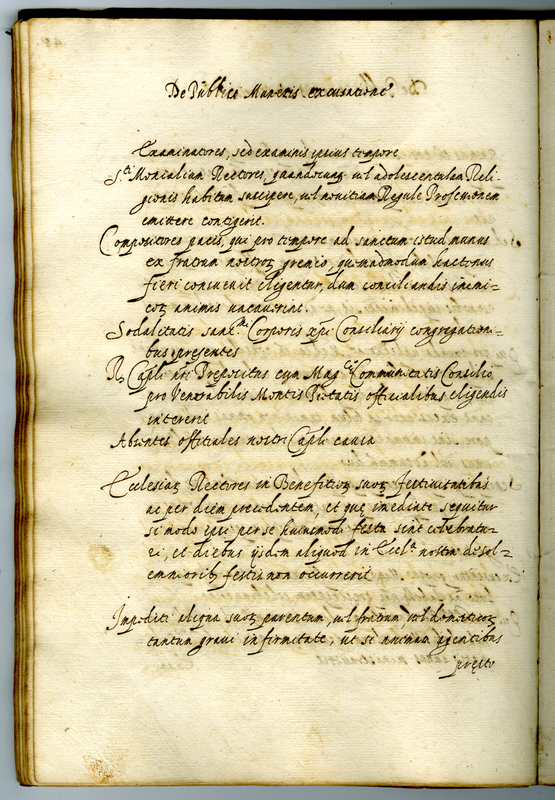 De Publici Muneris excusatione
Examinatores, sed examinis ipsius tempore
S.ti Monialium Rectores, quandocunq; vel adolescentulam Reli-
gionis habitum suscipere, vel novitiam Regule Professionem
emittere contigerit.
Compositores pacis, qui pro tempore ad sanctum istud munus
ex fratrum nostroꝝ gremio, quemadmodum hactenus
fieri consuevit eligentur, dum conciliandis inimi=
coꝝ animis vacaverint.
Sodalitatis sanct.mi Corporis xpi Consiliarij congregation=
bus presentes
R. Capli nri Prepositus cum Mag.ce Communitatis Consilio
pro Venerabilis Montis Pietatis officialibus eligendis
intererit
Absentes offitiales nostri Capli causa
Ecclesiaꝝ Rectores in Benefitioꝝ suoꝝ festivitatibus
ac per diem precedentem, et quę imediate sequitur
si modo ipsi per se huiusmodi festa sint celebratu-
ri, et diebus ijsdem aliquod in Eccl.a nostra de sol=
emnioribꝫ festis non occurrerit
Impediti aliqua suoꝝ parentum, vel fratrum, vel domesticoꝝ
tantum gravi infirmitate, ut si animam agentibus
pręsto